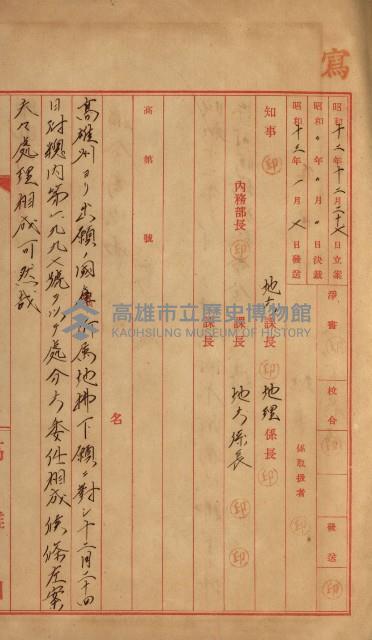 寫
昭和十二年十二月二十八日立案
昭和 年 月 日決裁
昭和十三年一月 日發送
淨書
校合
發送 印
係取扱者 印
知事 印
內務部長 印
地方課長 印
課長
課長
地理係長 印
地方係長 印
印
高第 號
名
高雄州ヨリ出願ノ國庫 屬地拂下願ニ對シ十二月二十四
日附總內第一九九八號ヲ以テ處分方委任相成候條左案
夫々處理相成可然哉
高雄市立歷史博物館
KAOHSIUNG MUSEUM OF HISTORY